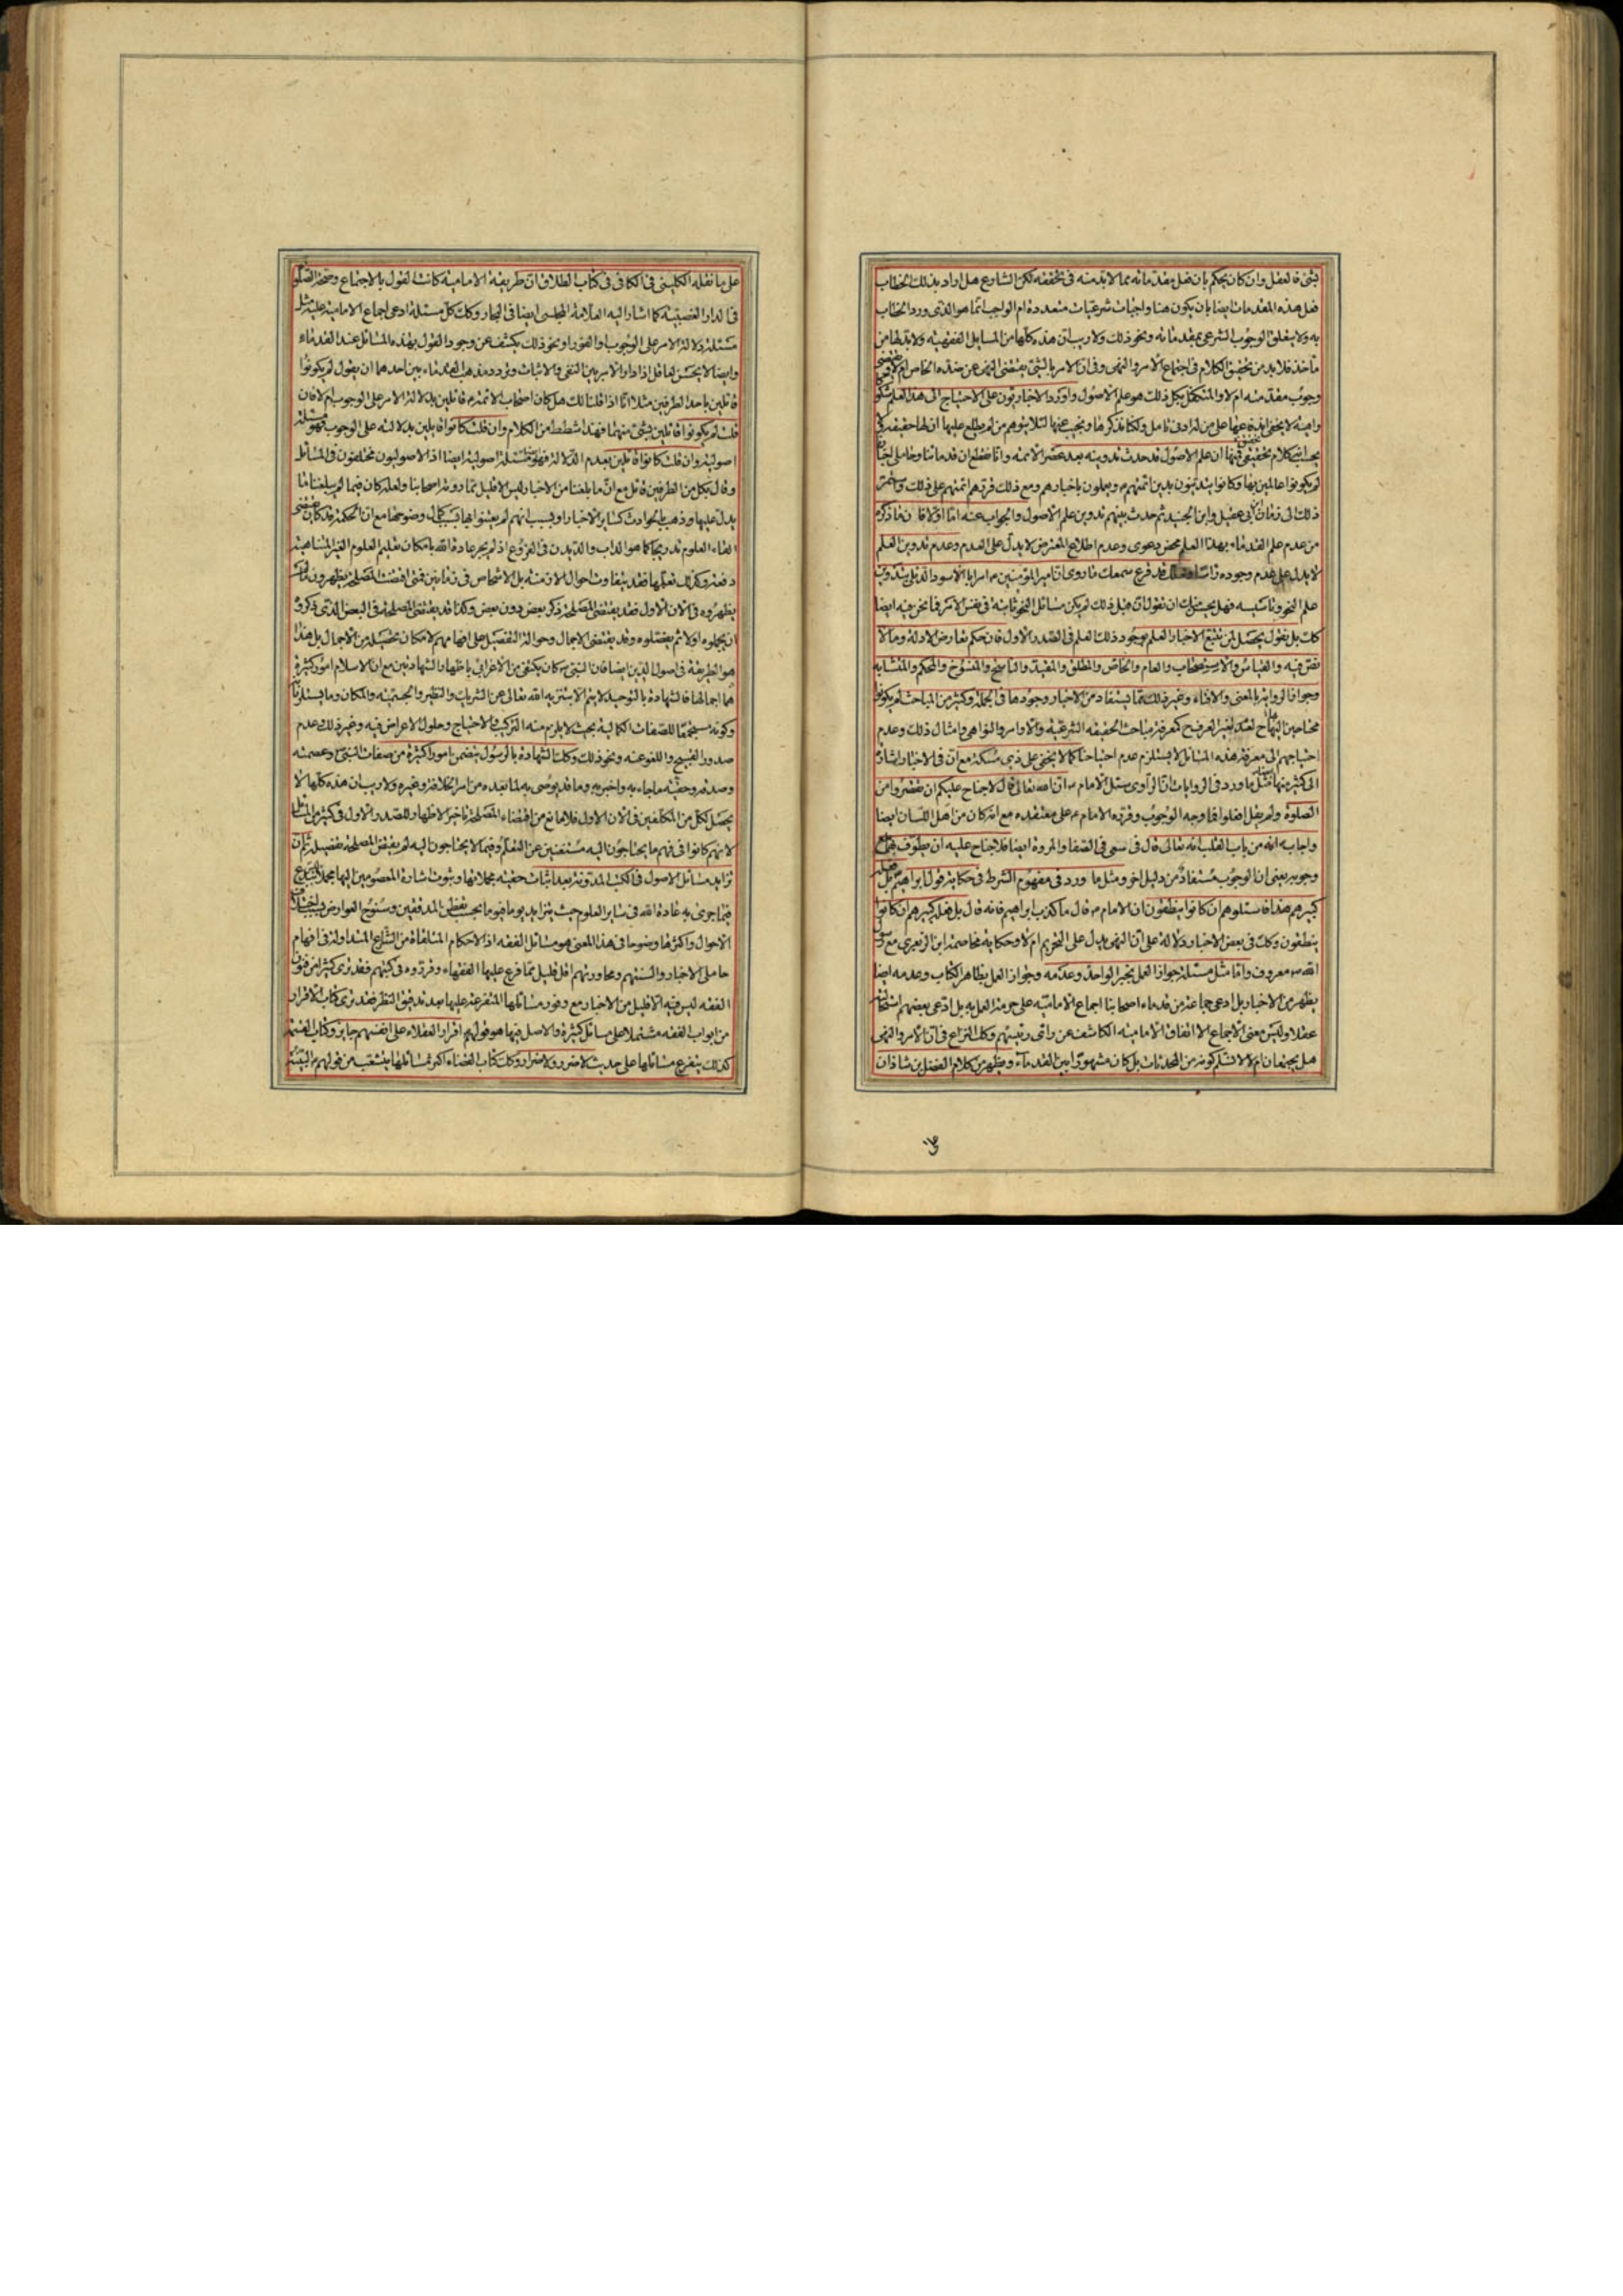 بشئ فالعقل وان كان يحكم بان فعل مقدماته مما لابد منه فى تحققه لكن الشارع هل اراد بذلك الخطاب
فعل هذه المقدمات ايضا بان يكون هنا واجبات شرعيات متعددة ام الواجب انما هو الذى ورد الخطاب
به ولا يتعلق الوجوب الشرعى بمقدماته ونحو ذلك ولا ريب ان هذه كلها من المسايل الفقهية ولابد لها من
مأخذ فلابد من تحقيق الكلام فى اجتماع الامر والنهى وفى ان الامر بالشئ يقتضى النهى عن ضده الخاص ام لا
وجوب مقدمته ام لا والمتكفل بكل ذلك هو علم الاصول واورد الاخباريون على الاحتياج الى هذا العلم شكوكا
واهية لا يخفى على من له ادنى تامل ولكنا نذكرها ونجيب عنها لئلا يتوهم من لم يطلع عليها ان لها حقيقة
ان علم الاصول قد حدث تدوينه بعد عصر الائمة وانا نقطع ان قدمائنا وحاملى اخبارنا
لم يكونوا عالمين بها وكانوا يتدينون بدين ائمتهم ويعملون باخبارهم ومع ذلك قررهم ائمتهم على ذلك واستمر
ذلك الى زمان ابن ابى عقيل وابن الجنيد ثم حدث بينهم تدوين علم الاصول والجواب عنه اما اولا فان ما ذكره
من عدم علم القدماء بهذا العلم محض دعوى وعدم اطلاع المعترض لا يدل على العدم وعدم تدوين العلم
لا يدل على عدم وجوده راسا فقد قرع سمعك ما روى ان امير المؤمنين امر ابا الاسود الدئلى بتدوين
علم النحو وتاسيسه فهل يحسن لك ان تقول ان قبل ذلك لم يكن مسائل النحو ثابتة فى نفس الامر فما نحن فيه ايضا
كك بل نقول يحصل لمن تتبع الاخبار العلم بوجود ذلك العلم فى الصدر الاول فان حكم تعارض الادلة وما لا
نص فيه والقياس والاستصحاب والعام والخاص والمطلق والمقيد والناسخ والمنسوخ والمحكم والمتشابه
وجواز الرواية بالمعنى والافتاء وغير ذلك مما يستفاد من الاخبار وجودها فى الجملة وكثير من المباحث لم يكونوا
محتاجين اليها لعدم تغير العرف كمعرفة مباحث الحقيقة الشرعية والاوامر والنواهى وامثال ذلك وعدم
احتياجهم الى معرفة هذه المسائل لا يستلزم عدم احتياجنا كما لا يخفى على ذى مسكة مع ان فى الاخبار اشارة
الى كثير منها مثل ما ورد فى الروايات ان الراوى سئل الامام ان الله تعالى قال لا جناح عليكم ان تقصروا من
الصلوة ولم يقل افعلوا فما وجه الوجوب وقرره الامام على معتقده مع انه كان من اهل اللسان ايضا
واجابه انه من باب انه تعالى قال فى سعى فى الصفا والمروة ايضا فلا جناح عليه ان يطوف بهما مع
وجوبه يعنى ان الوجوب مستفاد من دليل اخر ومثل ما ورد فى مفهوم الشرط فى حكاية قول ابراهيم بل فعله
كبيرهم هذا فاسئلوهم ان كانوا ينطقون ان الامام قال ما كذب ابراهيم فانه قال بل فعله كبيرهم ان كانوا
ينطقون وكك فى بعض الاخبار دلالة على ان النهى يدل على التحريم ام لا وحكاية مخاصمة ابن الزبعرى مع رسول
الله معروف واما مثل مسئلة جواز العمل بخبر الواحد وعدمه وجواز العمل بظاهر الكتاب وعدمه ايضا
يظهر من الاخبار بل ادعى جماعة من قدماء اصحابنا اجماع الامامية على حرمة العمل به بل ادعى بعضهم استحالته
عقلا وليس معنى الاجماع الا اتفاق الامامية الكاشف عن راى رئيسهم وكك النزاع فى ان الامر والنهى
هل يجتمعان ام لا لا نسلم كونه من المحدثات بل كان مشهورا بين القدماء ويظهر من كلام الفضل بن شاذان
على ما نقله الكلينى فى الكافى فى كتاب الطلاق ان طريقة الامامية كانت القول بالاجتماع وصحة الصلوة
فى الدار الغصبية كما اشار اليه العلامة المجلسى ايضا فى البحار وكك كل مسئلة ادعى اجماع الامامية عليه مثل
مسئلة دلالة الامر على الوجوب او الفور او نحو ذلك يكشف عن وجود القول بهذه المسائل عند القدماء
وايضا لا يحسن لعاقل اذا دار الامر بين النفى والاثبات وتردد مذهب القدماء بين احدهما ان يقول لم يكونوا
قائلين باحد الطرفين مثلا انا اذا قلنا لك هل كان اصحاب الائمة قائلين بدلالة الامر على الوجوب ام لا فان
قلت لم يكونوا قائلين بشئ منهما فهذا شطط من الكلام وان قلت كانوا قايلين بدلالته على الوجوب فهو مسئلة
اصولية وان قلت كانوا قائلين بعدم الدلالة فهو مسئلة اصولية ايضا اذ الاصوليون مختلفون فى المسائل
وقال بكل من الطرفين قائل مع ان ما بلغنا من الاخبار ليس الا قليل مما رووته اصحابنا ولعله كان فيما لم يبلغنا ما
يدل عليها وذهب بالحوادث كساير الاخبار او بسبب انهم لم يعتنوا بها بسبب كمال وضوحها مع ان الحكمة قد كان
القاء العلوم تدريجا كما هو الداب والديدن فى الفروع اذ لم يجر عادة الله بامكان تعليم العلوم الغير المتناهية
دفعة وكذلك تعلمها فقد يتفاوت احوال الازمنة بل الاشخاص فى زمانين فمتى اقتضت المصلحة يظهرون ما لم
يظهروه فى الان الاول فقد يقتضى المصلحة ذكر بعض دون بعض وكذا قد يقتضى المصلحة فى البعض الذى ذكروه
ان يجملوه اولا ثم يفصلوه وقد يقتضى الاجمال وحوالة التفصيل على افهامهم لامكان تحصيله من الاجمال بل هذا
هو الطريقة فى اصول الدين ايضا فان النبى كان يكتفى من الاعرابى باظهار الشهادتين مع ان الاسلام امور كثيرة
هما اجمالها فالشهادة بالتوحيد لا يتم الا بتنزيه الله تعالى عن الشريك والنظير والجسمية والمكان وما يستلزمها
وكونه مستجمعا للصفات الكمالية بحيث لا يلزم منه التركيب والاحتياج وحلول الاعراض فيه وغير ذلك وعدم
صدور القبيح واللغو عنه ونحو ذلك وكك الشهادة بالرسول يتضمن بامور اكثيرة من صفات النبى وعصمته
وصدقه وحقية ما جاء به واخبر به وما قد يوصى به لما بعده من امر الخلافة وغيره ولا ريب ان هذه كلها لا
يحصل لكل من المكلفين فى الان الاول فلا مانع من اقتضاء المصلحة تاخير الاظهار للصدر الاول فى كثير من المسائل
لانهم كانوا فى فهم ما يحتاجون اليه مستغنين عن التعلم وفيما لا يحتاجون اليه لم يقتض المصلحة تفصيله ثم ان
تزايد مسائل الاصول فى الكتب المدونة بعد اثبات حقية مجملاتها وثبوت اشارة المعصومين اليها
فيما جرى به عادة الله فى ساير العلوم حيث يتزايد يوما فيوما بحسب تفطن المدققين وسنوح العوارض واختلاف
الاحوال واكثرها وضوحا فى هذا المعنى هو مسائل الفقه اذ الاحكام المتلقاة من الشارع المتداولة فى افهام
حاملى الاخبار والسنتهم ومحاوراتهم اقل قليل مما فرع عليها الفقهاء وقرروه فى كتبهم فقد ترى كثيرا من فروع
الفقه ليس فيه الا قليل من الاخبار مع وفور مسائلها المتفرعة عليها بعد تدقيق النظر فقد ترى كتاب الاقرار
من ابواب الفقه مشتملا على مسائل كثيرة والاصل فيها هو قولهم اقرار العقلاء على انفسهم جايز وكتاب الغصب
كذلك يتفرع مسائلها على حديث لا ضرر ولا ضرار وكك كتاب القضاء اكثر مسائلها ينشعب من قولهم البينة